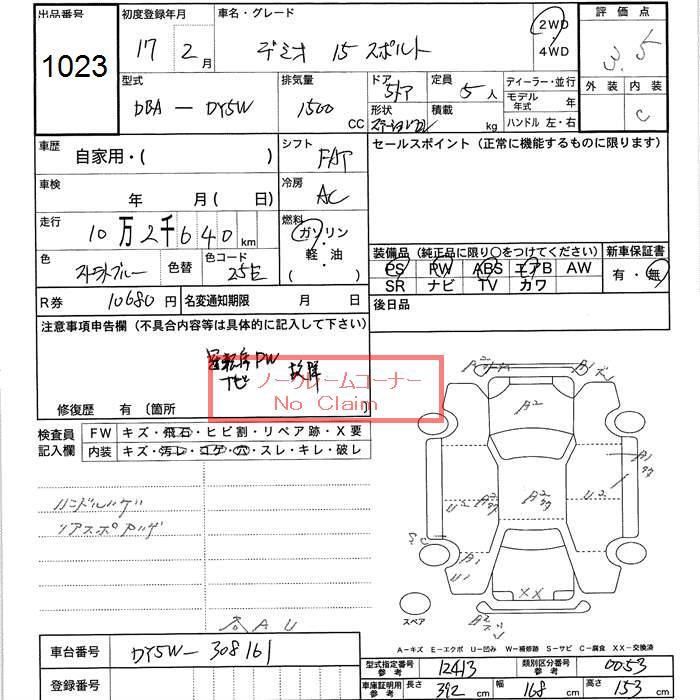 出品番号 初度登録年月 車名・グレード 2WD 評価点
1023 17 2月 デミオ 15 スポルト ・4WD 3.5
型式 排気量 ドア 定員 ディーラー・並行 外装 内装
DBA — DY5W 1500 CC 5ドア 5人 モデル年式 年 C
形状 積載 kg ハンドル 左・右
車歴 自家用・( ) シフト FAT セールスポイント (正常に機能するものに限ります)
車検 年 月 ( 日) 冷房 AC
走行 10万2千640km 燃料 ガソリン・軽油 ( )
装備品 (純正品に限り○をつけてください) 新車保証書
色 色替 色コード 25E
PS PW ABS エアB AW 有・無
SR ナビ TV カワ
R券 10680円 名変通知期限 月 日 後日品
注意事項申告欄 (不具合内容等は具体的に記入して下さい)
運転席PW 故障
ノークレームコーナー
No Claim
修復歴 有 〔箇所 〕
検査員記入欄 FW キズ・飛石・ヒビ割・リペア跡・X要
内装 キズ・汚レ・コゲ・穴・スレ・キレ・破レ
ハンドルハゲ
リアスポ ハゲ
A2
A2
U2
XX
スペア
A-キズ E-エクボ U-凹み W-補修跡 S-サビ C-腐食 XX-交換済
車台番号 DY5W-308161
型式指定番号参考 12413 類別区分番号参考 0053
登録番号
車庫証明用参考 長さ 392 cm 幅 168 cm 高さ 153 cm